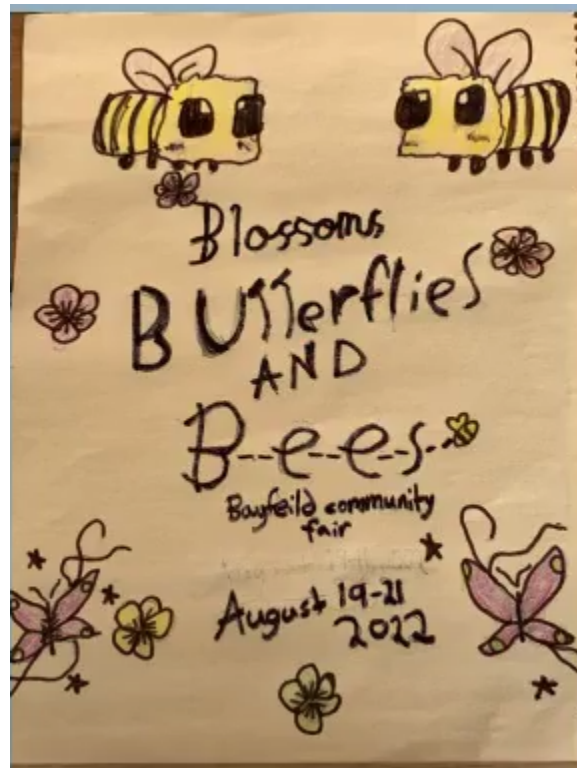 Blossoms
BUTTerflies
AND
B--e-e-s
Bayfeild community
fair
August 19-21
2022